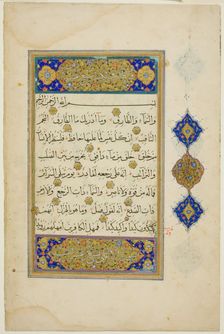 بسم الله الرحمن الرحيم
والسماء والطارق وما ادريك ما الطارق النجم
الثاقب ان كل نفس لما عليها حافظ فلينظر الانسان
مم خلق خلق من ماء دافق يخرج من بين الصلب
والترائب انه على رجعه لقادر يوم تبلى السرائر
فما له من قوة ولا ناصر والسماء ذات الرجع والارض
ذات الصدع انه لقول فصل وما هو بالهزل انهم
يكيدون كيدا واكيد كيدا فمهل الكافرين امهلهم